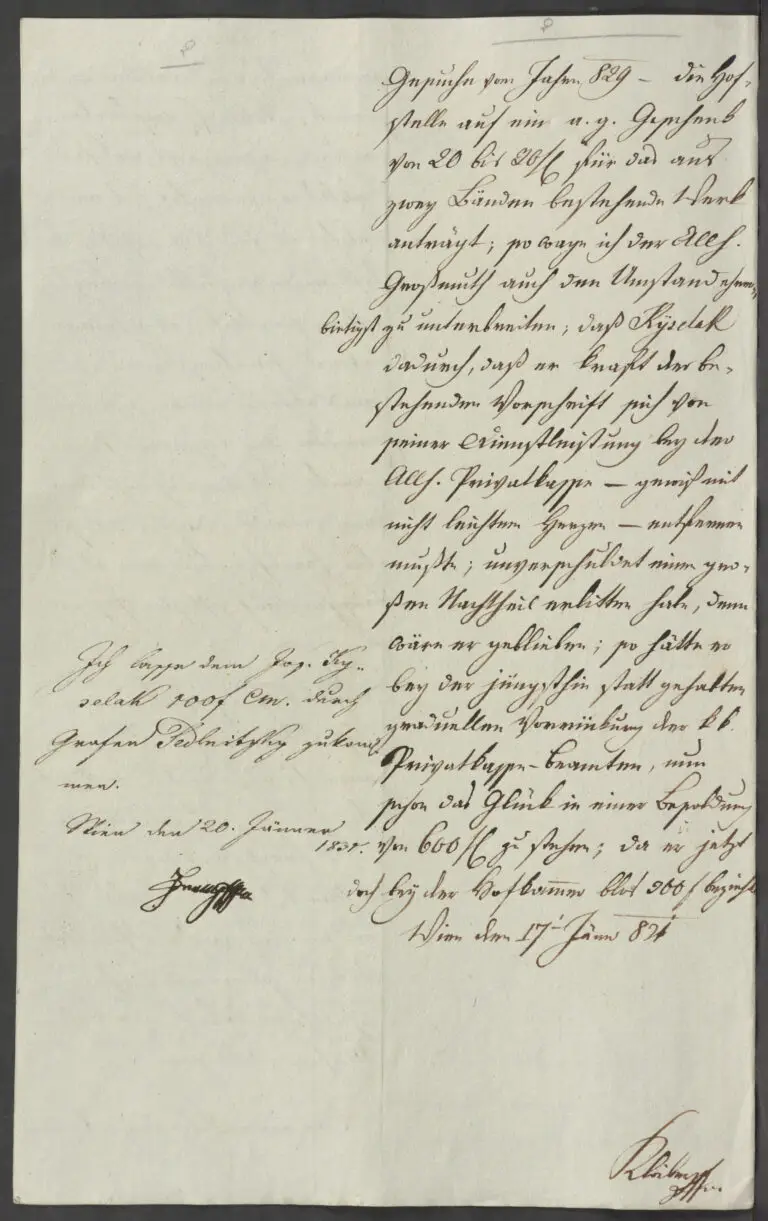 Gesuche vom Jahre 829 – die Hof-
stelle auf ein a. g. Geschenk
von 20 bis 30 # für das aus
zwey Bänden bestehende Werk
anträgt; so wage ich der Allh.
Großmuth auch den Umstand ehrer-
bietigst zu unterbreiten; daß Kyselak
dadurch, daß er kraft der be-
stehenden Vorschrift sich von
seiner Dienstleistung bey der
Allh. Privatkasse – gewiß mit
nicht leichtem Herzen – entfernen
mußte; unverschuldet einen gro-
ßen Nachtheil erlitten habe, denn
wäre er geblieben; so hätte er
bey der jüngsthin statt gehabten
graduellen Vorrückung der k k.
Privatkasse-Beamten, nun
schon das Glück in einer Besoldung
von 600 f zu stehen; da er jetzt
doch bey der Hofkammer blos 300 f bezieht
Wien den 17t Jänner 831
Ich lasse dem Jos. Ky-
selak 100 f Cm. durch
Grafen Sedlnitzky zukom-
men.
Wien den 20. Jänner
1831.
Franz